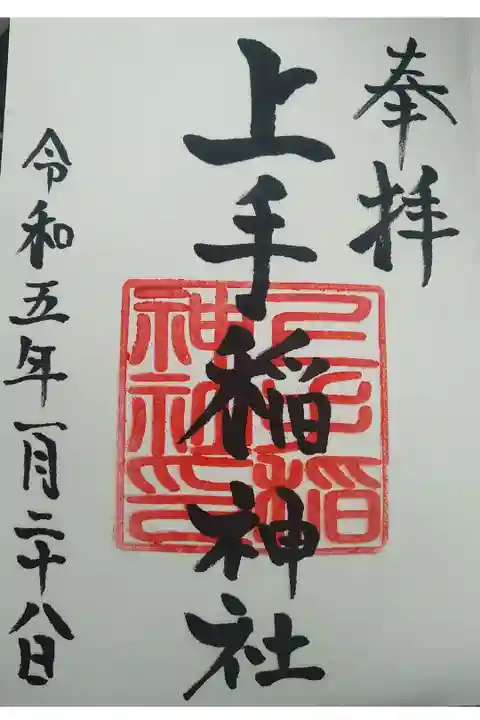 奉拝
上手稲神社
上手稲神社印
令和五年一月二十八日